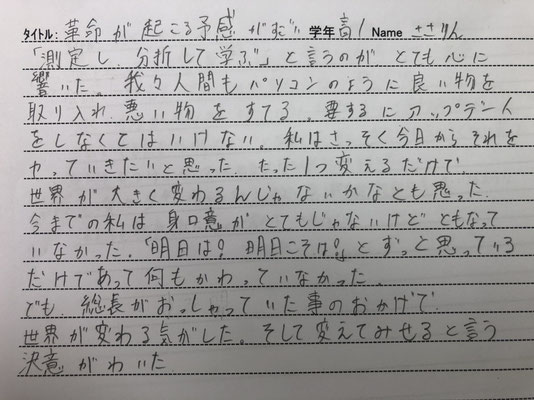 タイトル: 革命が起こる予感がすごい 学年 高1 Name ささりん
「測定し、分析して学ぶ」と言うのが とても心に
響いた。我々人間もパソコンのように良い物を
取り入れ 悪い物をすてる。要するにアップデート
をしなくてはいけない。私はさっそく今日からそれを
やっていきたいと思った。たった1つ変えるだけで
世界が大きく変わるんじゃないかなとも思った。
今までの私は 身口意がとてもじゃないけど ともなって
いなかった。「明日は? 明日こそは?」とずっと思っている
だけであって何もかわっていなかった。
でも 総長がおっしゃっていた事のおかげで
世界が変わる気がした。そして変えてみせると言う
決意がわいた